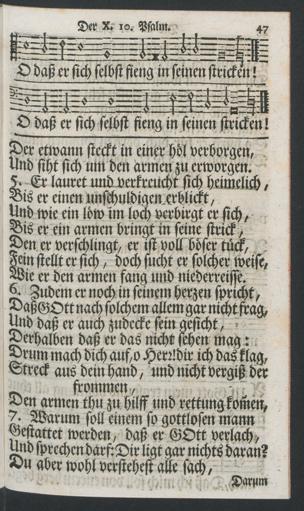 Der X. 10. Psalm. 47
O daß er sich selbst fieng in seinen stricken!
O daß er sich selbst fieng in seinen stricken!
Der etwann steckt in einer höl verborgen,
Und siht sich um den armen zu erworgen.
5. Er lauret und verkreucht sich heimelich,
Bis er einen unschuldigen erblickt,
Und wie ein löw im loch verbirgt er sich,
Bis er ein armen bringt in seine strick,
Den er verschlingt, er ist voll böser tück,
Fein stellt er sich, doch sucht er solcher weise,
Wie er den armen fang und niederreisse.
6. Zudem er noch in seinem herzen spricht,
Daß GOtt nach solchem allem gar nicht frag,
Und daß er auch zudecke sein gesicht,
Derhalben daß er das nicht sehen mag:
Drum mach dich auf, o Herr! dir ich das klag,
Streck aus dein hand, und nicht vergiß der
frommen,
Den armen thu zu hilff und rettung kom̃en,
7. Warum soll einem so gottlosen mann
Gestattet werden, daß er GOtt verlach,
Und sprechen darf: Dir ligt gar nichts daran?
Du aber wohl verstehest alle sach,
Darum